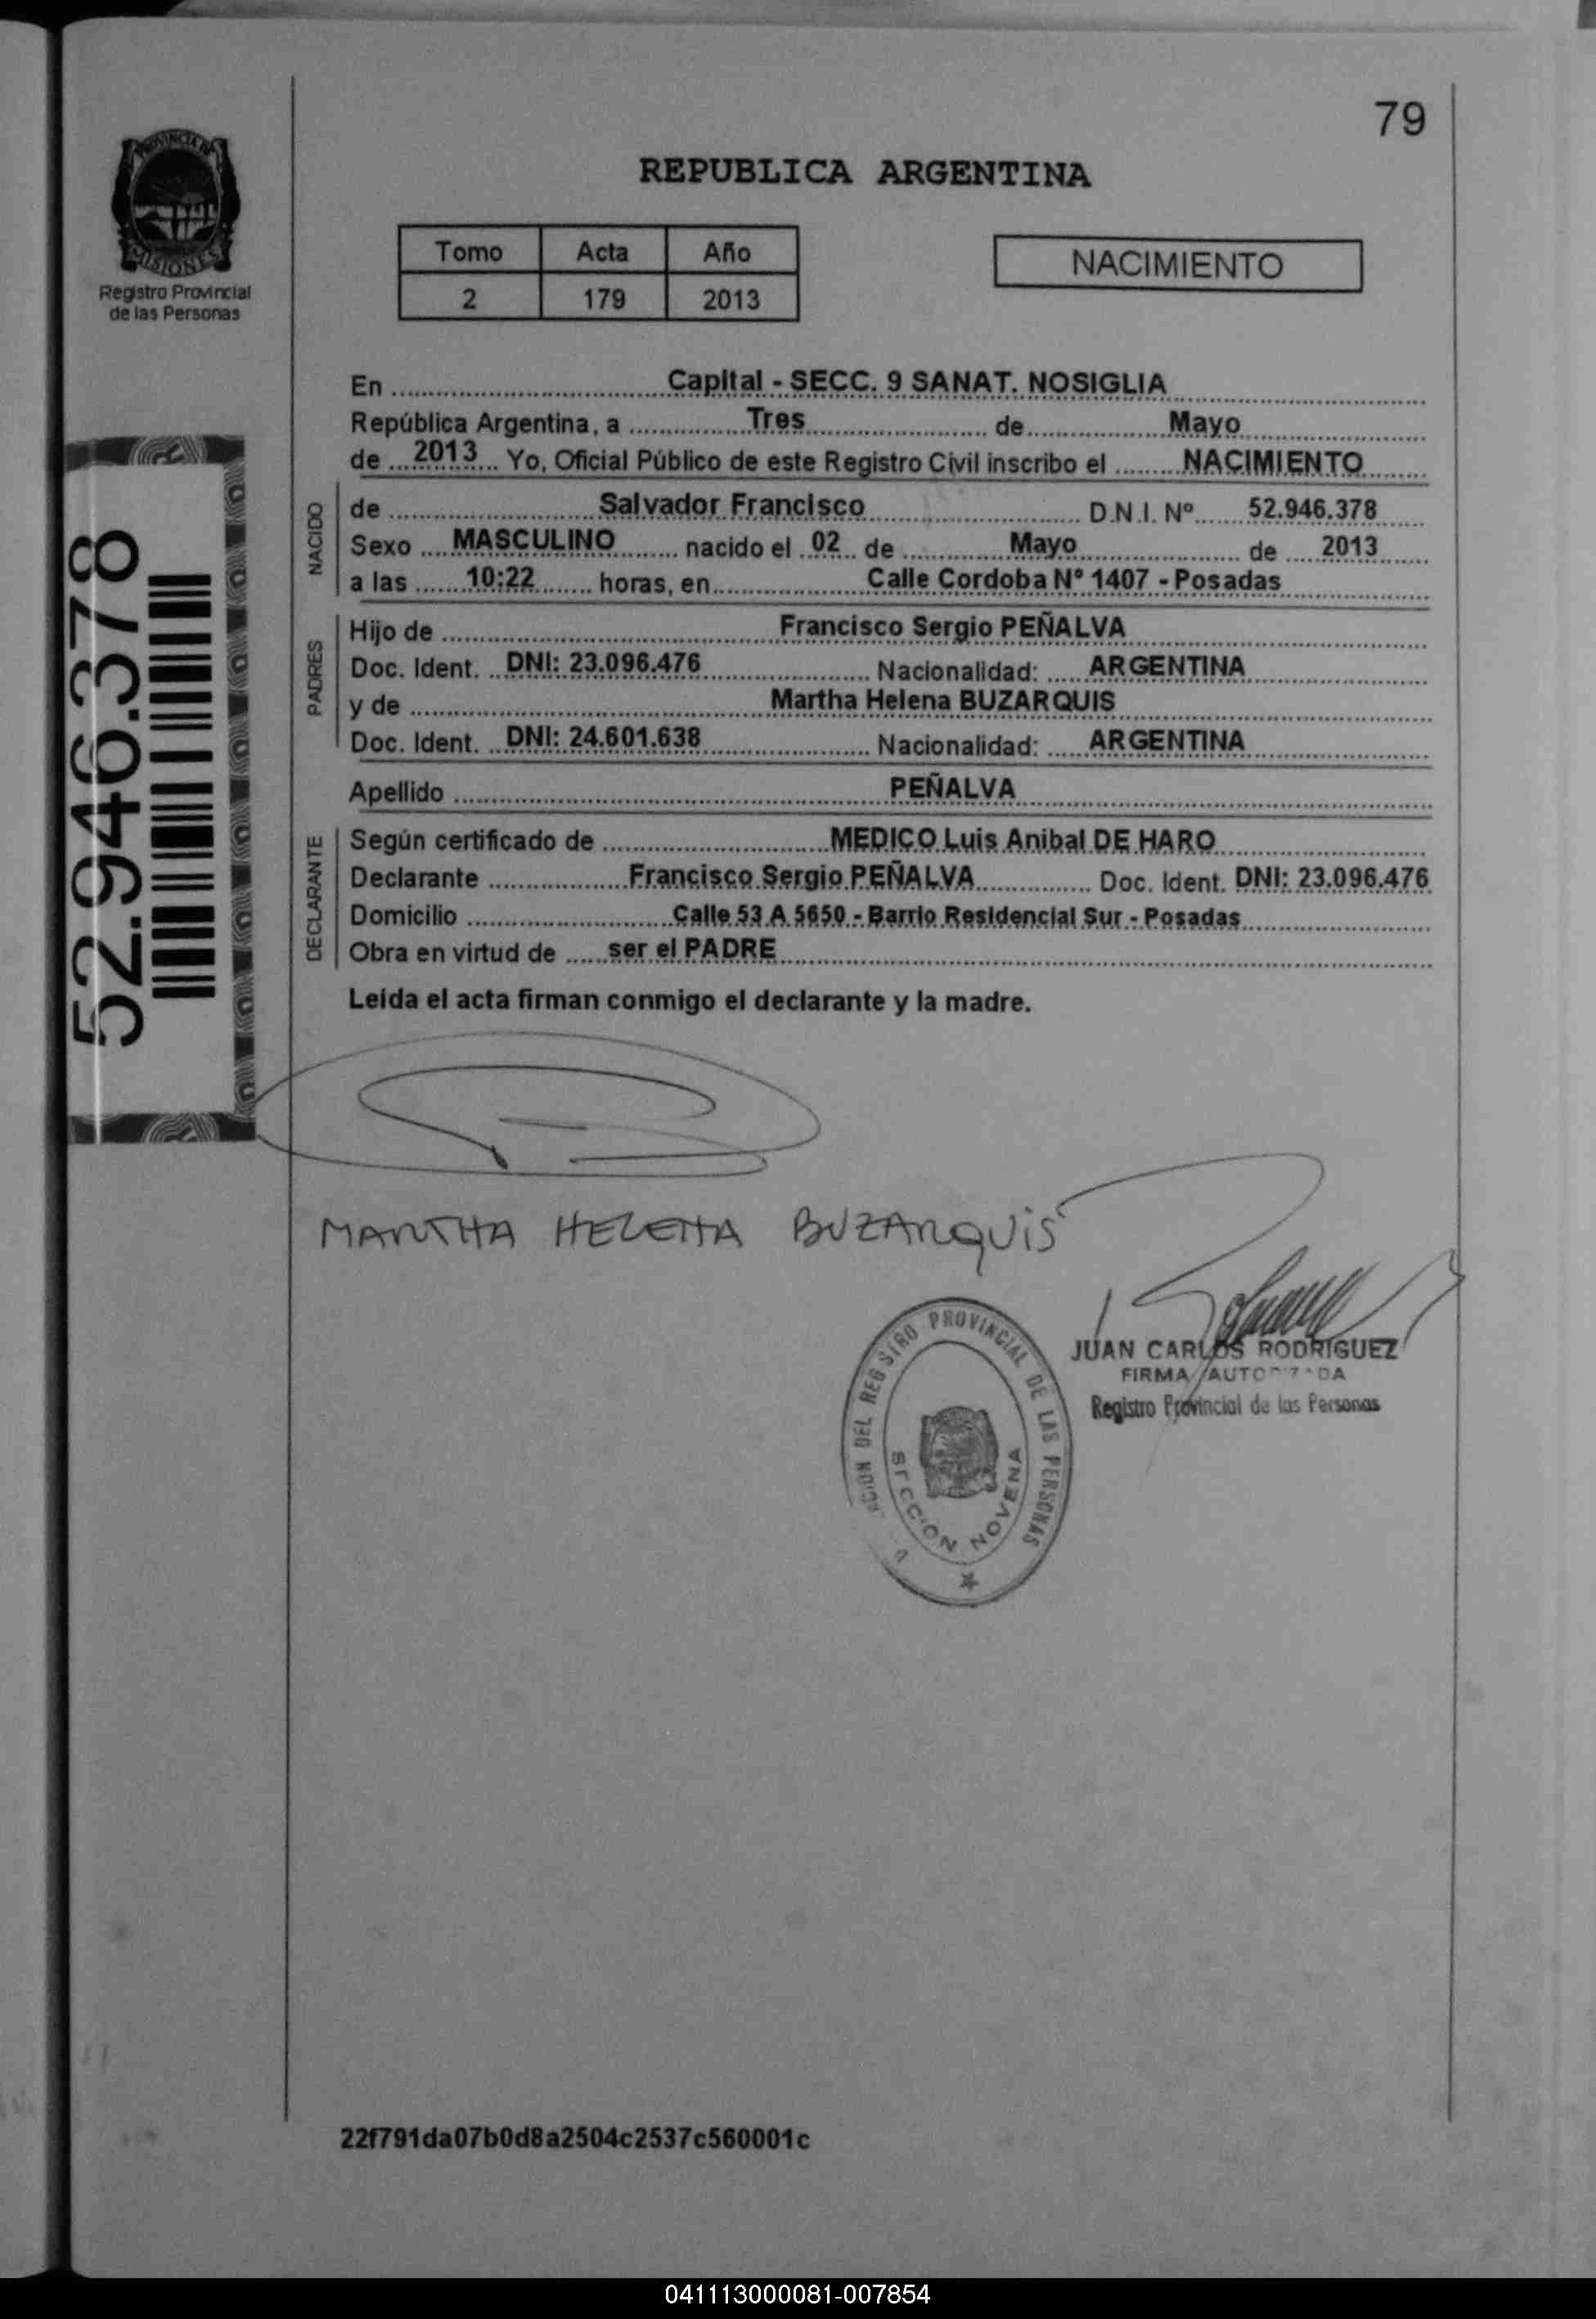 79
PROVINCIA DE
MISIONES
Registro Provincial
de las Personas
REPUBLICA ARGENTINA
Tomo Acta Año
2 179 2013
NACIMIENTO
En Capital - SECC. 9 SANAT. NOSIGLIA
República Argentina, a Tres de Mayo
de 2013 Yo, Oficial Público de este Registro Civil inscribo el NACIMIENTO
NACIDO
de Salvador Francisco D.N.I. Nº 52.946.378
Sexo MASCULINO nacido el 02 de Mayo de 2013
a las 10:22 horas, en Calle Cordoba Nº 1407 - Posadas
PADRES
Hijo de Francisco Sergio PEÑALVA
Doc. Ident. DNI: 23.096.476 Nacionalidad: ARGENTINA
y de Martha Helena BUZARQUIS
Doc. Ident. DNI: 24.601.638 Nacionalidad: ARGENTINA
Apellido PEÑALVA
DECLARANTE
Según certificado de MEDICO Luis Anibal DE HARO
Declarante Francisco Sergio PEÑALVA Doc. Ident. DNI: 23.096.476
Domicilio Calle 53 A 5650 - Barrio Residencial Sur - Posadas
Obra en virtud de ser el PADRE
Leída el acta firman conmigo el declarante y la madre.
52.946.378
MARTHA HELENA BUZARQUIS
JUAN CARLOS RODRIGUEZ
FIRMA AUTORIZADA
Registro Provincial de las Personas
DEL REGISTRO PROVINCIAL DE LAS PERSONAS
SECCION NOVENA
22f791da07b0d8a2504c2537c560001c
041113000081-007854